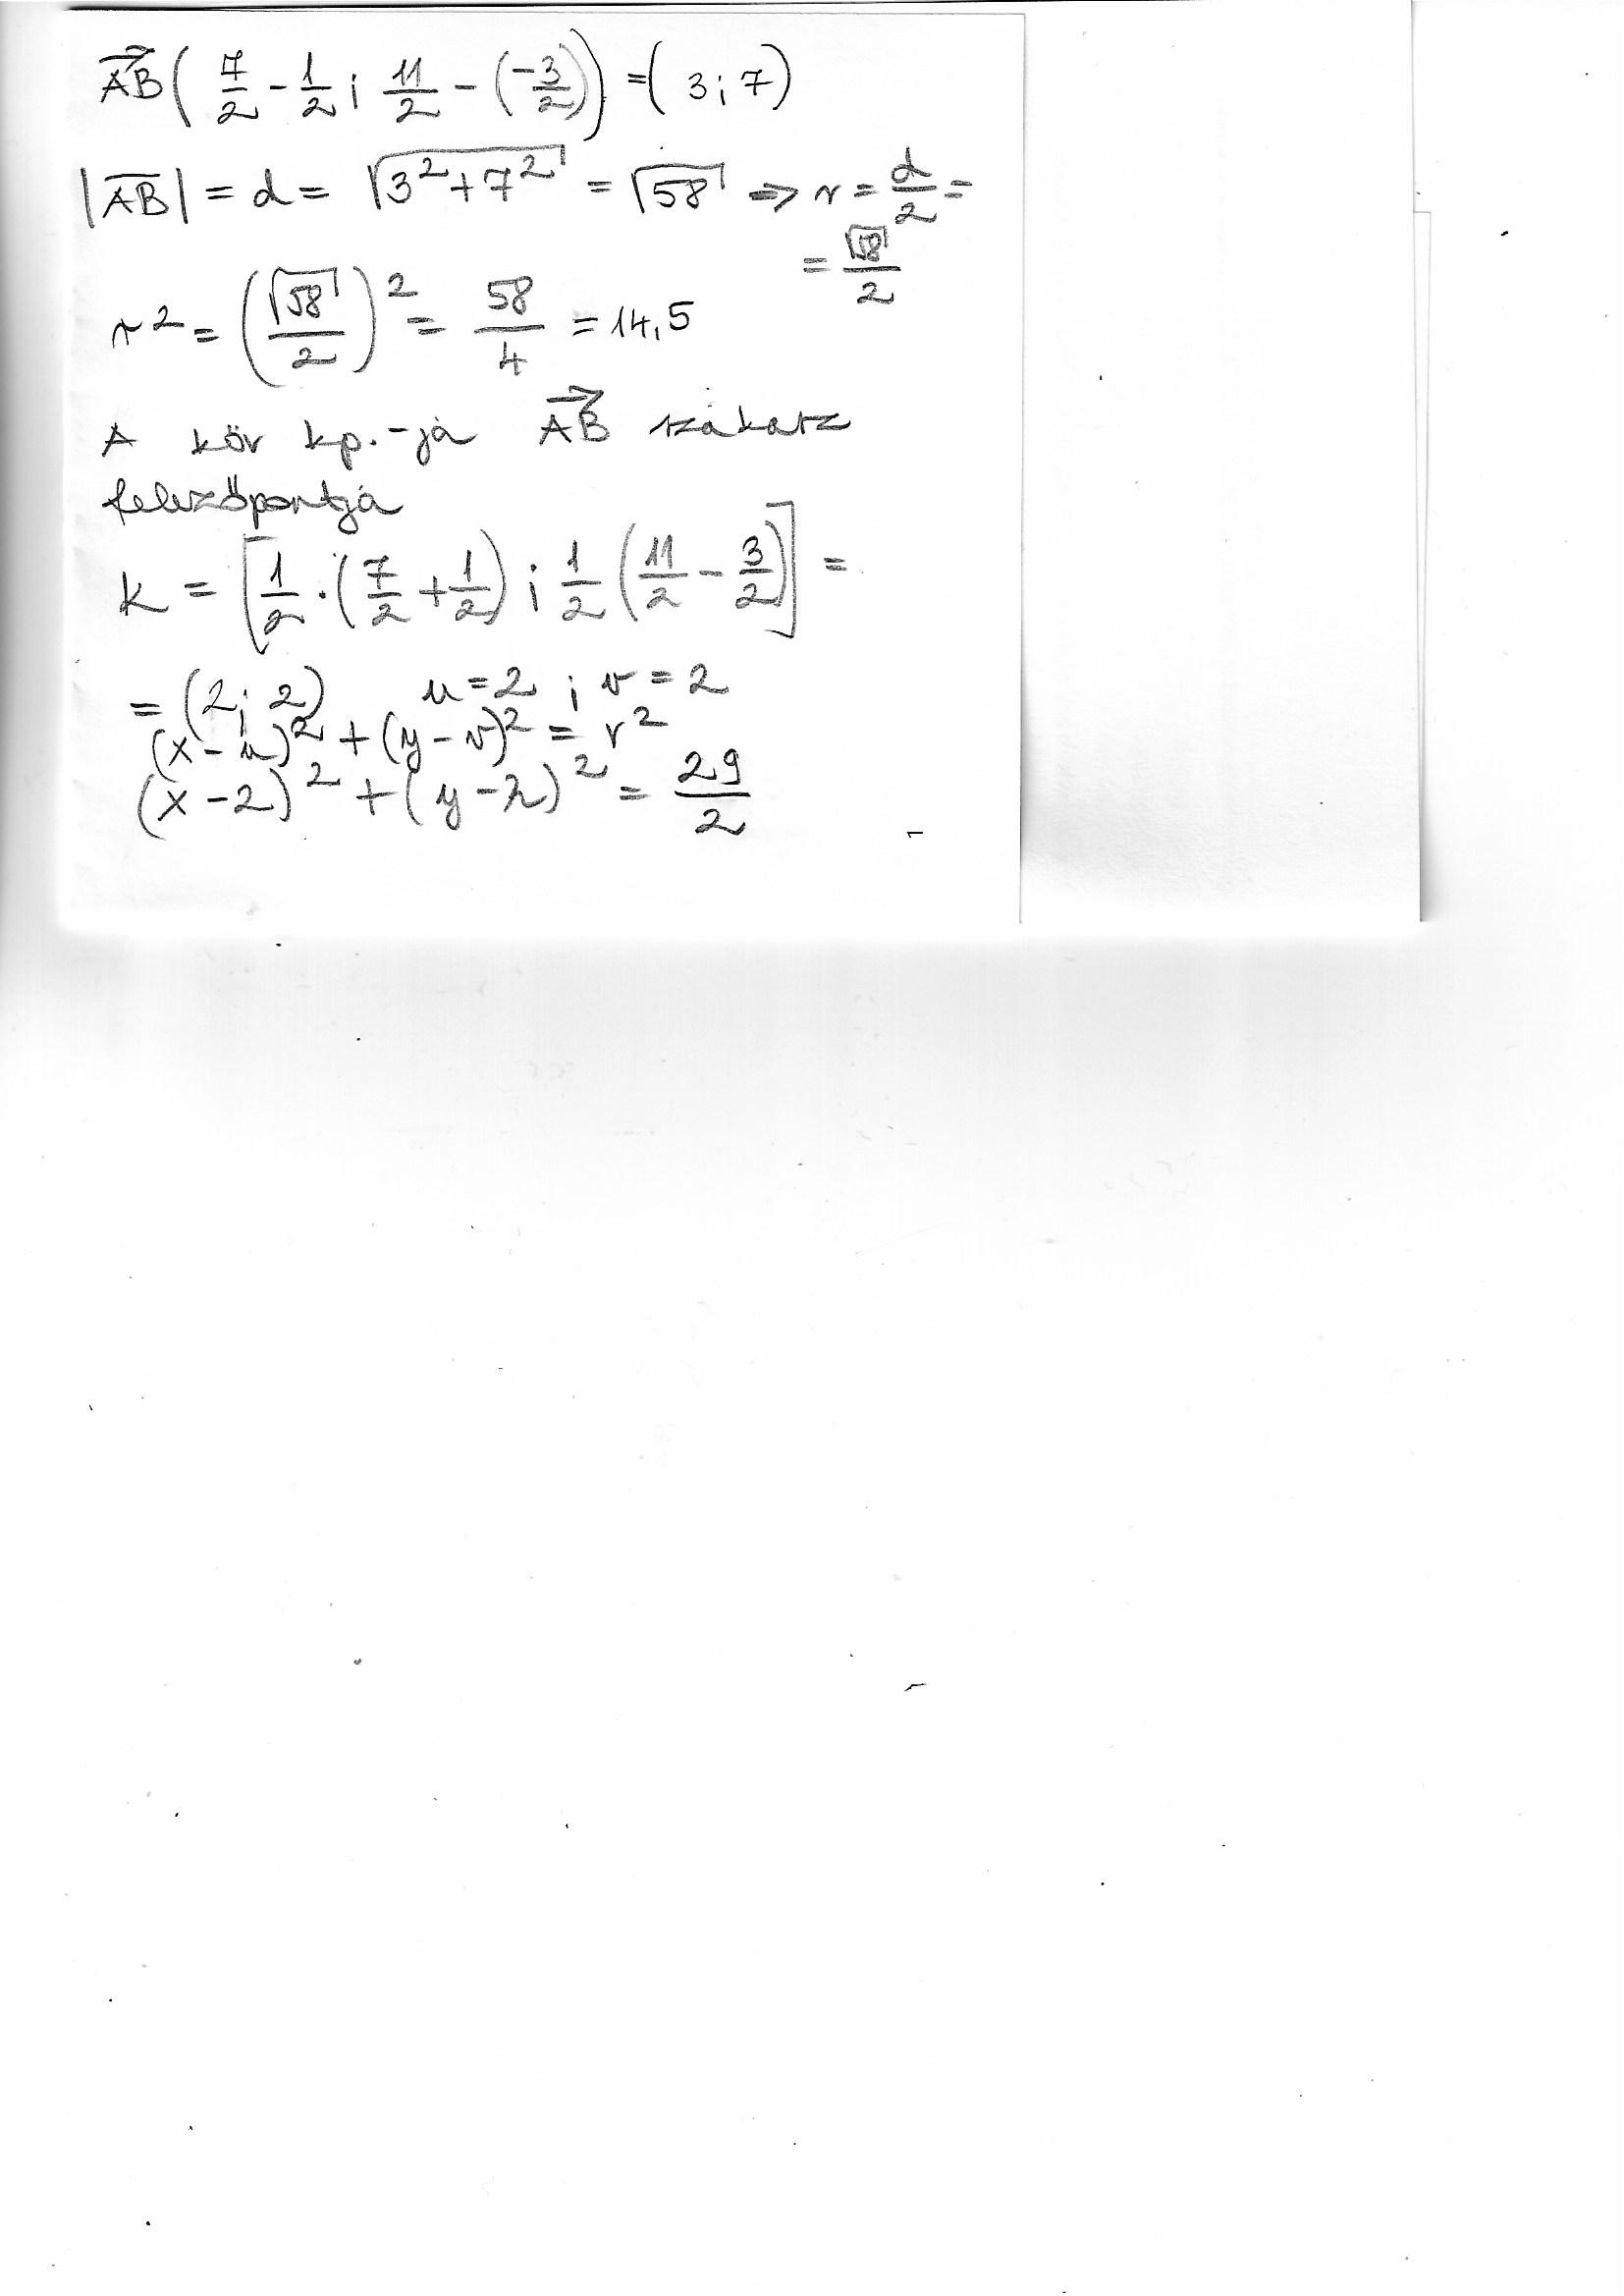 AB→ ( 7/2 - 1/2 ; 11/2 - (-3/2)) = ( 3 ; 7)
|AB| = d = √(3² + 7²) = √58 => r = d/2 =
= √58/2
r² = (√58/2)² = 58/4 = 14,5
A kör kp.-ja AB→ szakasz
felezőpontja
K = [1/2 · (7/2 + 1/2) ; 1/2 (11/2 - 3/2)] =
= (2 ; 2) u = 2 ; v = 2
(x - u)² + (y - v)² = r²
(x - 2)² + (y - 2)² = 29/2